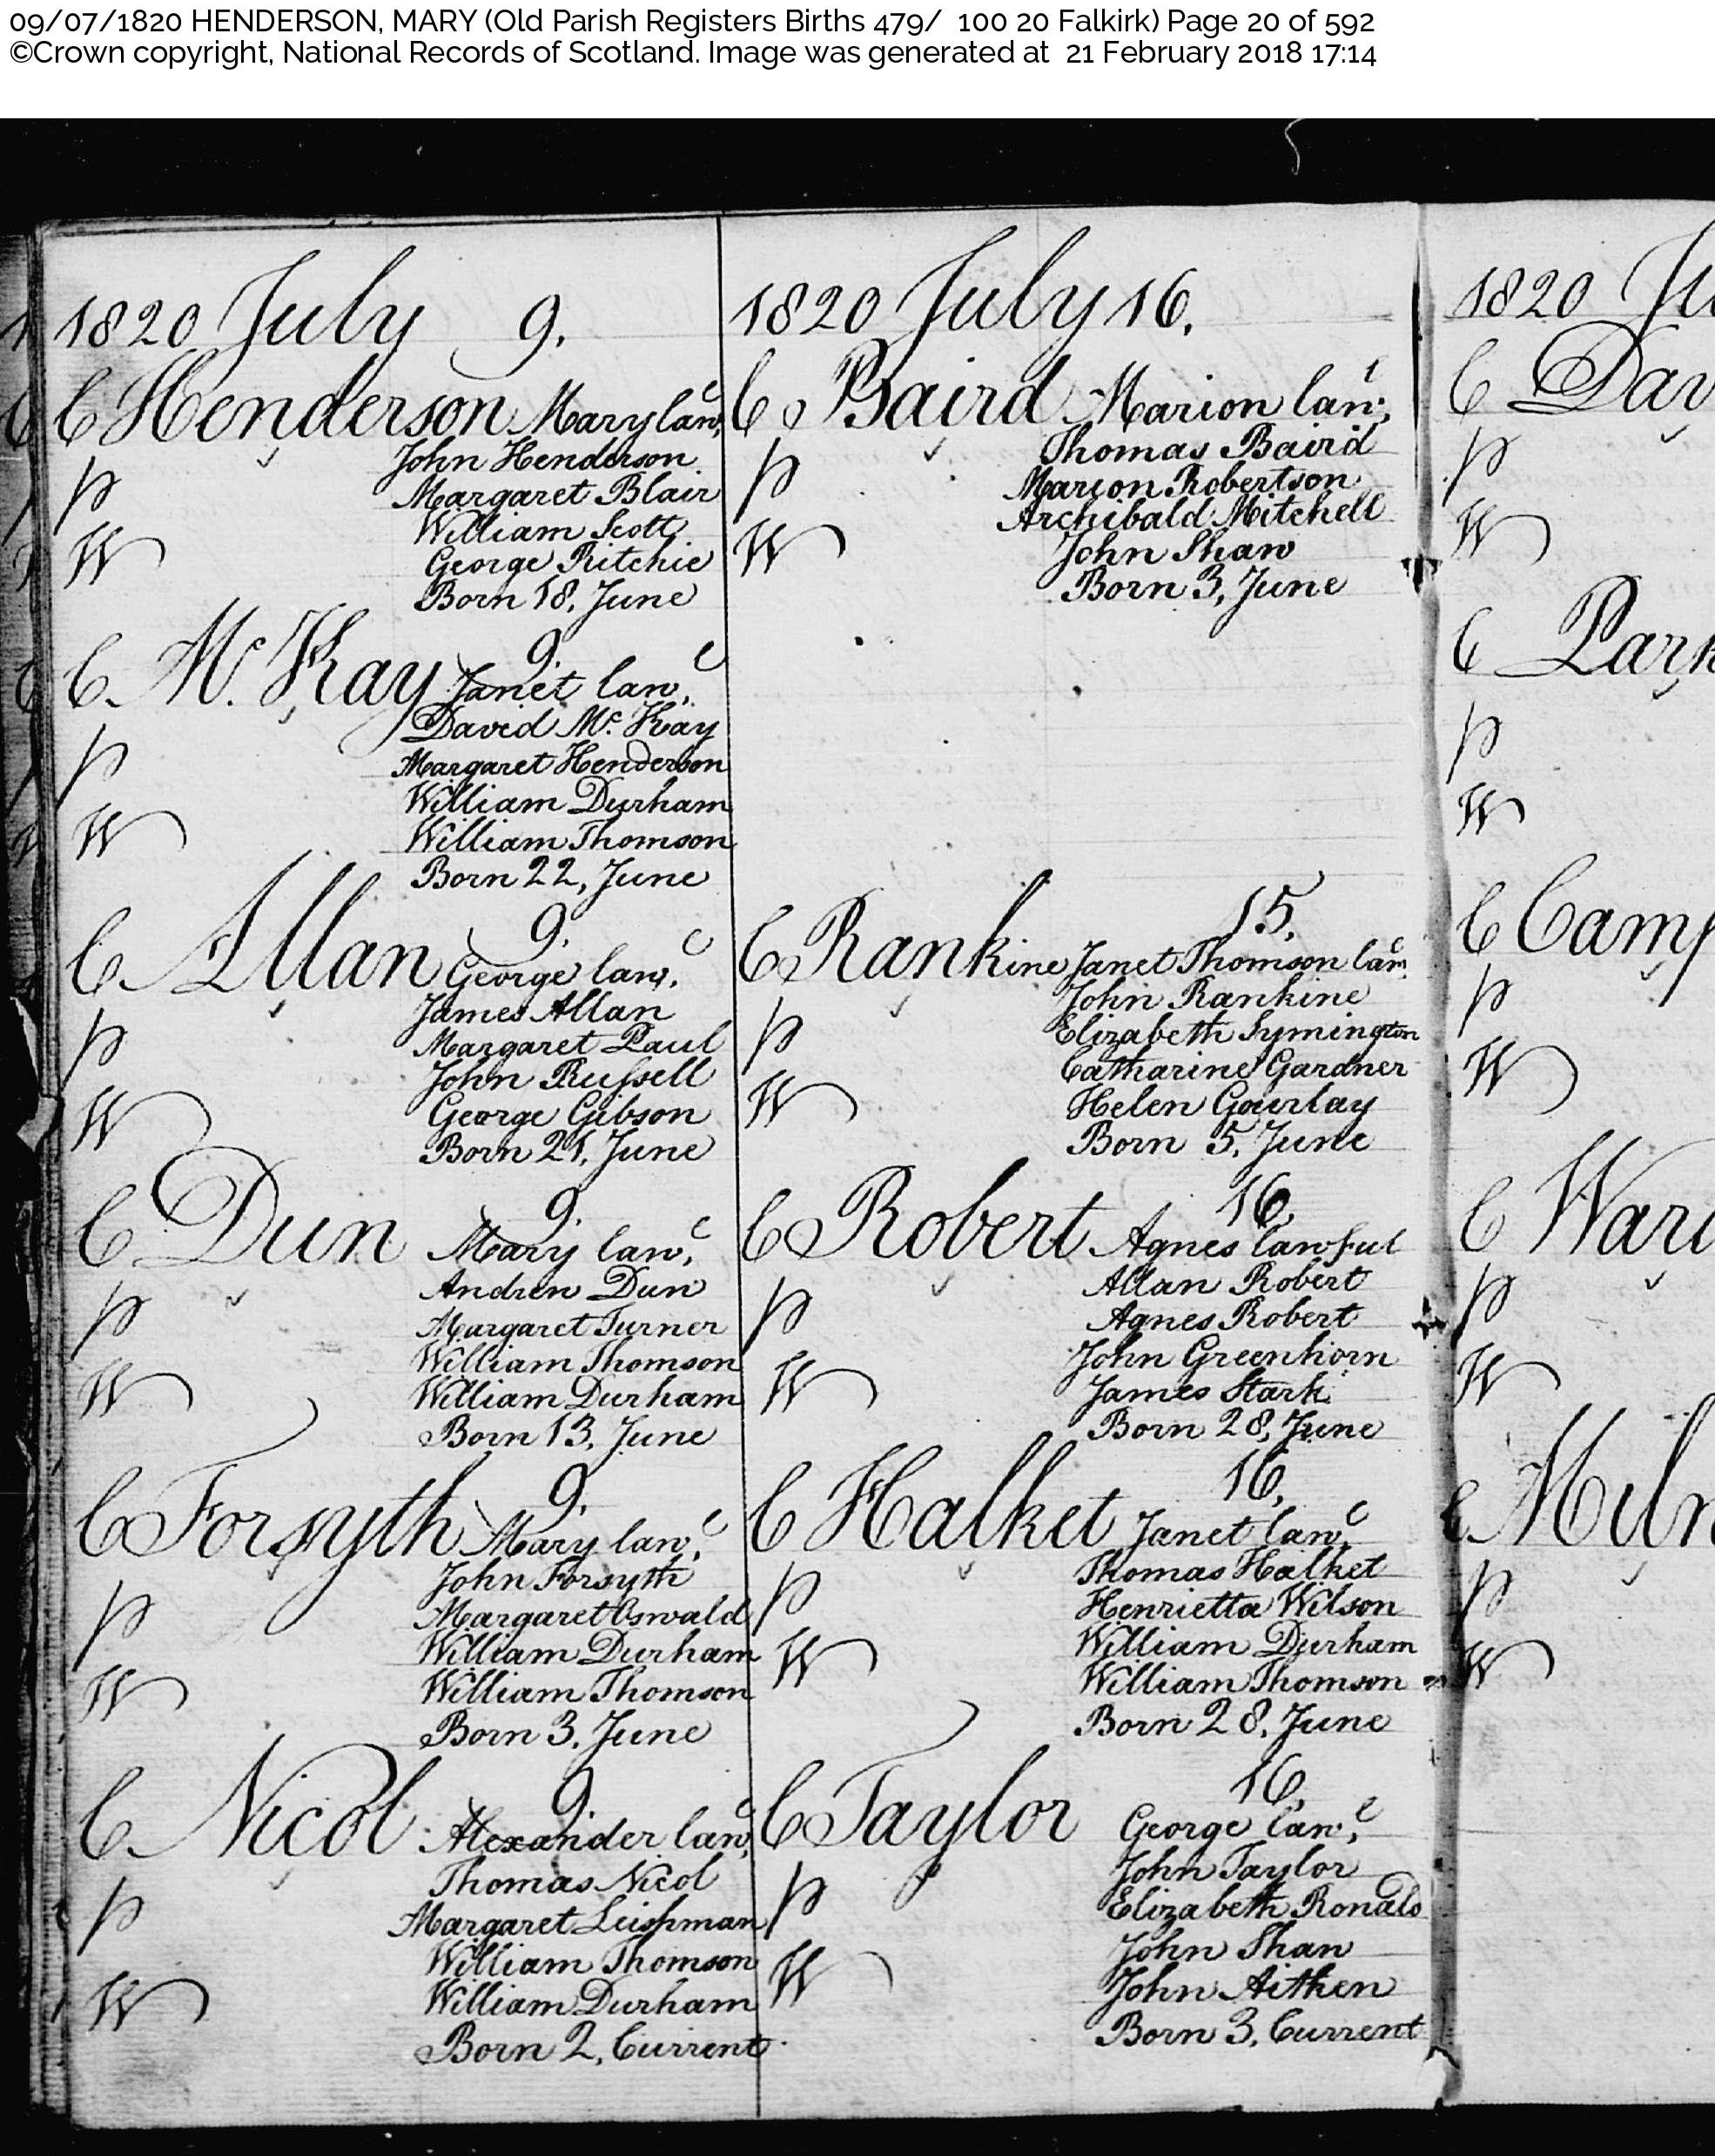 09/07/1820 HENDERSON, MARY (Old Parish Registers Births 479/ 100 20 Falkirk) Page 20 of 592
©Crown copyright, National Records of Scotland. Image was generated at 21 February 2018 17:14
1820 July 9.
C Henderson Mary law.l
John Henderson
p Margaret Blair
William Scott
W George Ritchie
Born 18, June
9.
C Mc. Kay Janet law.l
David Mc. Kay
p Margaret Henderson
William Durham
W William Thomson
Born 22, June
9.
C Allan George law.l
James Allan
p Margaret Paul
John Russell
W George Gibson
Born 21, June
9.
C Dun Mary law.l
Andrew Dun
p Margaret Turner
William Thomson
W William Durham
Born 13, June
9.
C Forsyth Mary law.l
John Forsyth
p Margaret Oswald
William Durham
W William Thomson
Born 3, June
9.
C Nicol Alexander law.l
Thomas Nicol
p Margaret Leishman
William Thomson
W William Durham
Born 2, Current
1820 July 16.
C Baird Marion law.l
Thomas Baird
p Marion Robertson
Archibald Mitchell
W John Shaw
Born 3, June
15.
C Rankine Janet Thomson law.l
John Rankine
p Elizabeth Symington
Catharine Gardner
W Helen Gourlay
Born 5, June
16.
C Robert Agnes lawful
Allan Robert
p Agnes Robert
John Greenhorn
W James Stark
Born 28, June
16.
C Halket Janet law.l
Thomas Halket
p Henrietta Wilson
William Durham
W William Thomson
Born 28, June
16.
C Taylor George law.l
John Taylor
p Elizabeth Ronald
John Shaw
W John Aitken
Born 3, Current
1820 Ju
C Dav
p
W
C Park
p
W
C Camp
p
W
C Ward
p
W
C Miln
p
W